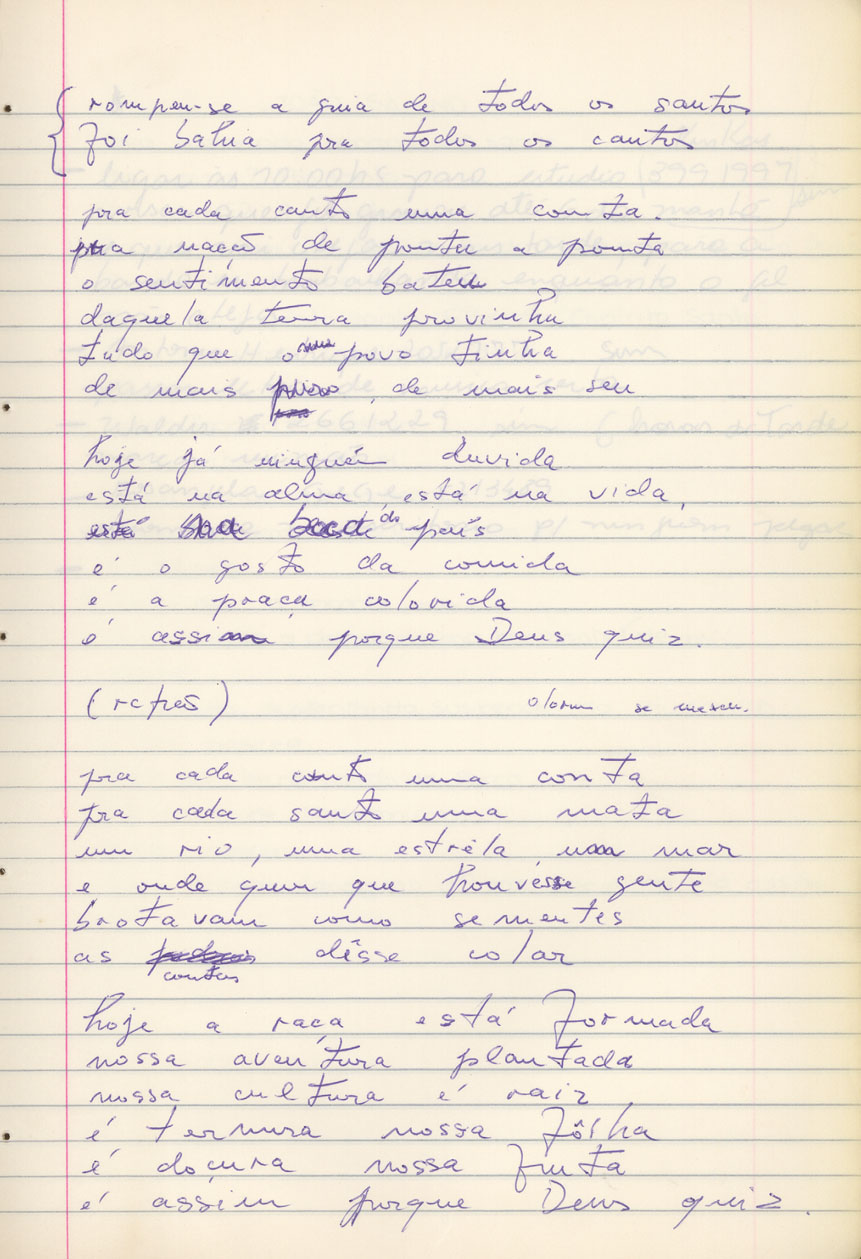 rompeu-se a guia de todos os santos
foi bahia pra todos os cantos
pra cada canto uma conta.
pra nação de ponta a ponta
o sentimento bateu
daquela terra provinha
tudo que o meu povo tinha
de mais puro, de mais seu
hoje já ninguém duvida
está na alma, está na vida,
está na boca do país
é o gosto da comida
é a praça colorida
é assim porque Deus quiz.
(refrão)
olorum se mexeu.
pra cada canto uma conta
pra cada santo uma mata
um rio, uma estrêla, um mar
e onde quer que houvesse gente
brotavam como sementes
as contas dêsse colar
hoje a raça está formada
nossa aventura plantada
nossa cultura é raiz
é ternura nossa fôlha
é doçura nossa fruta
é assim porque Deus quiz.